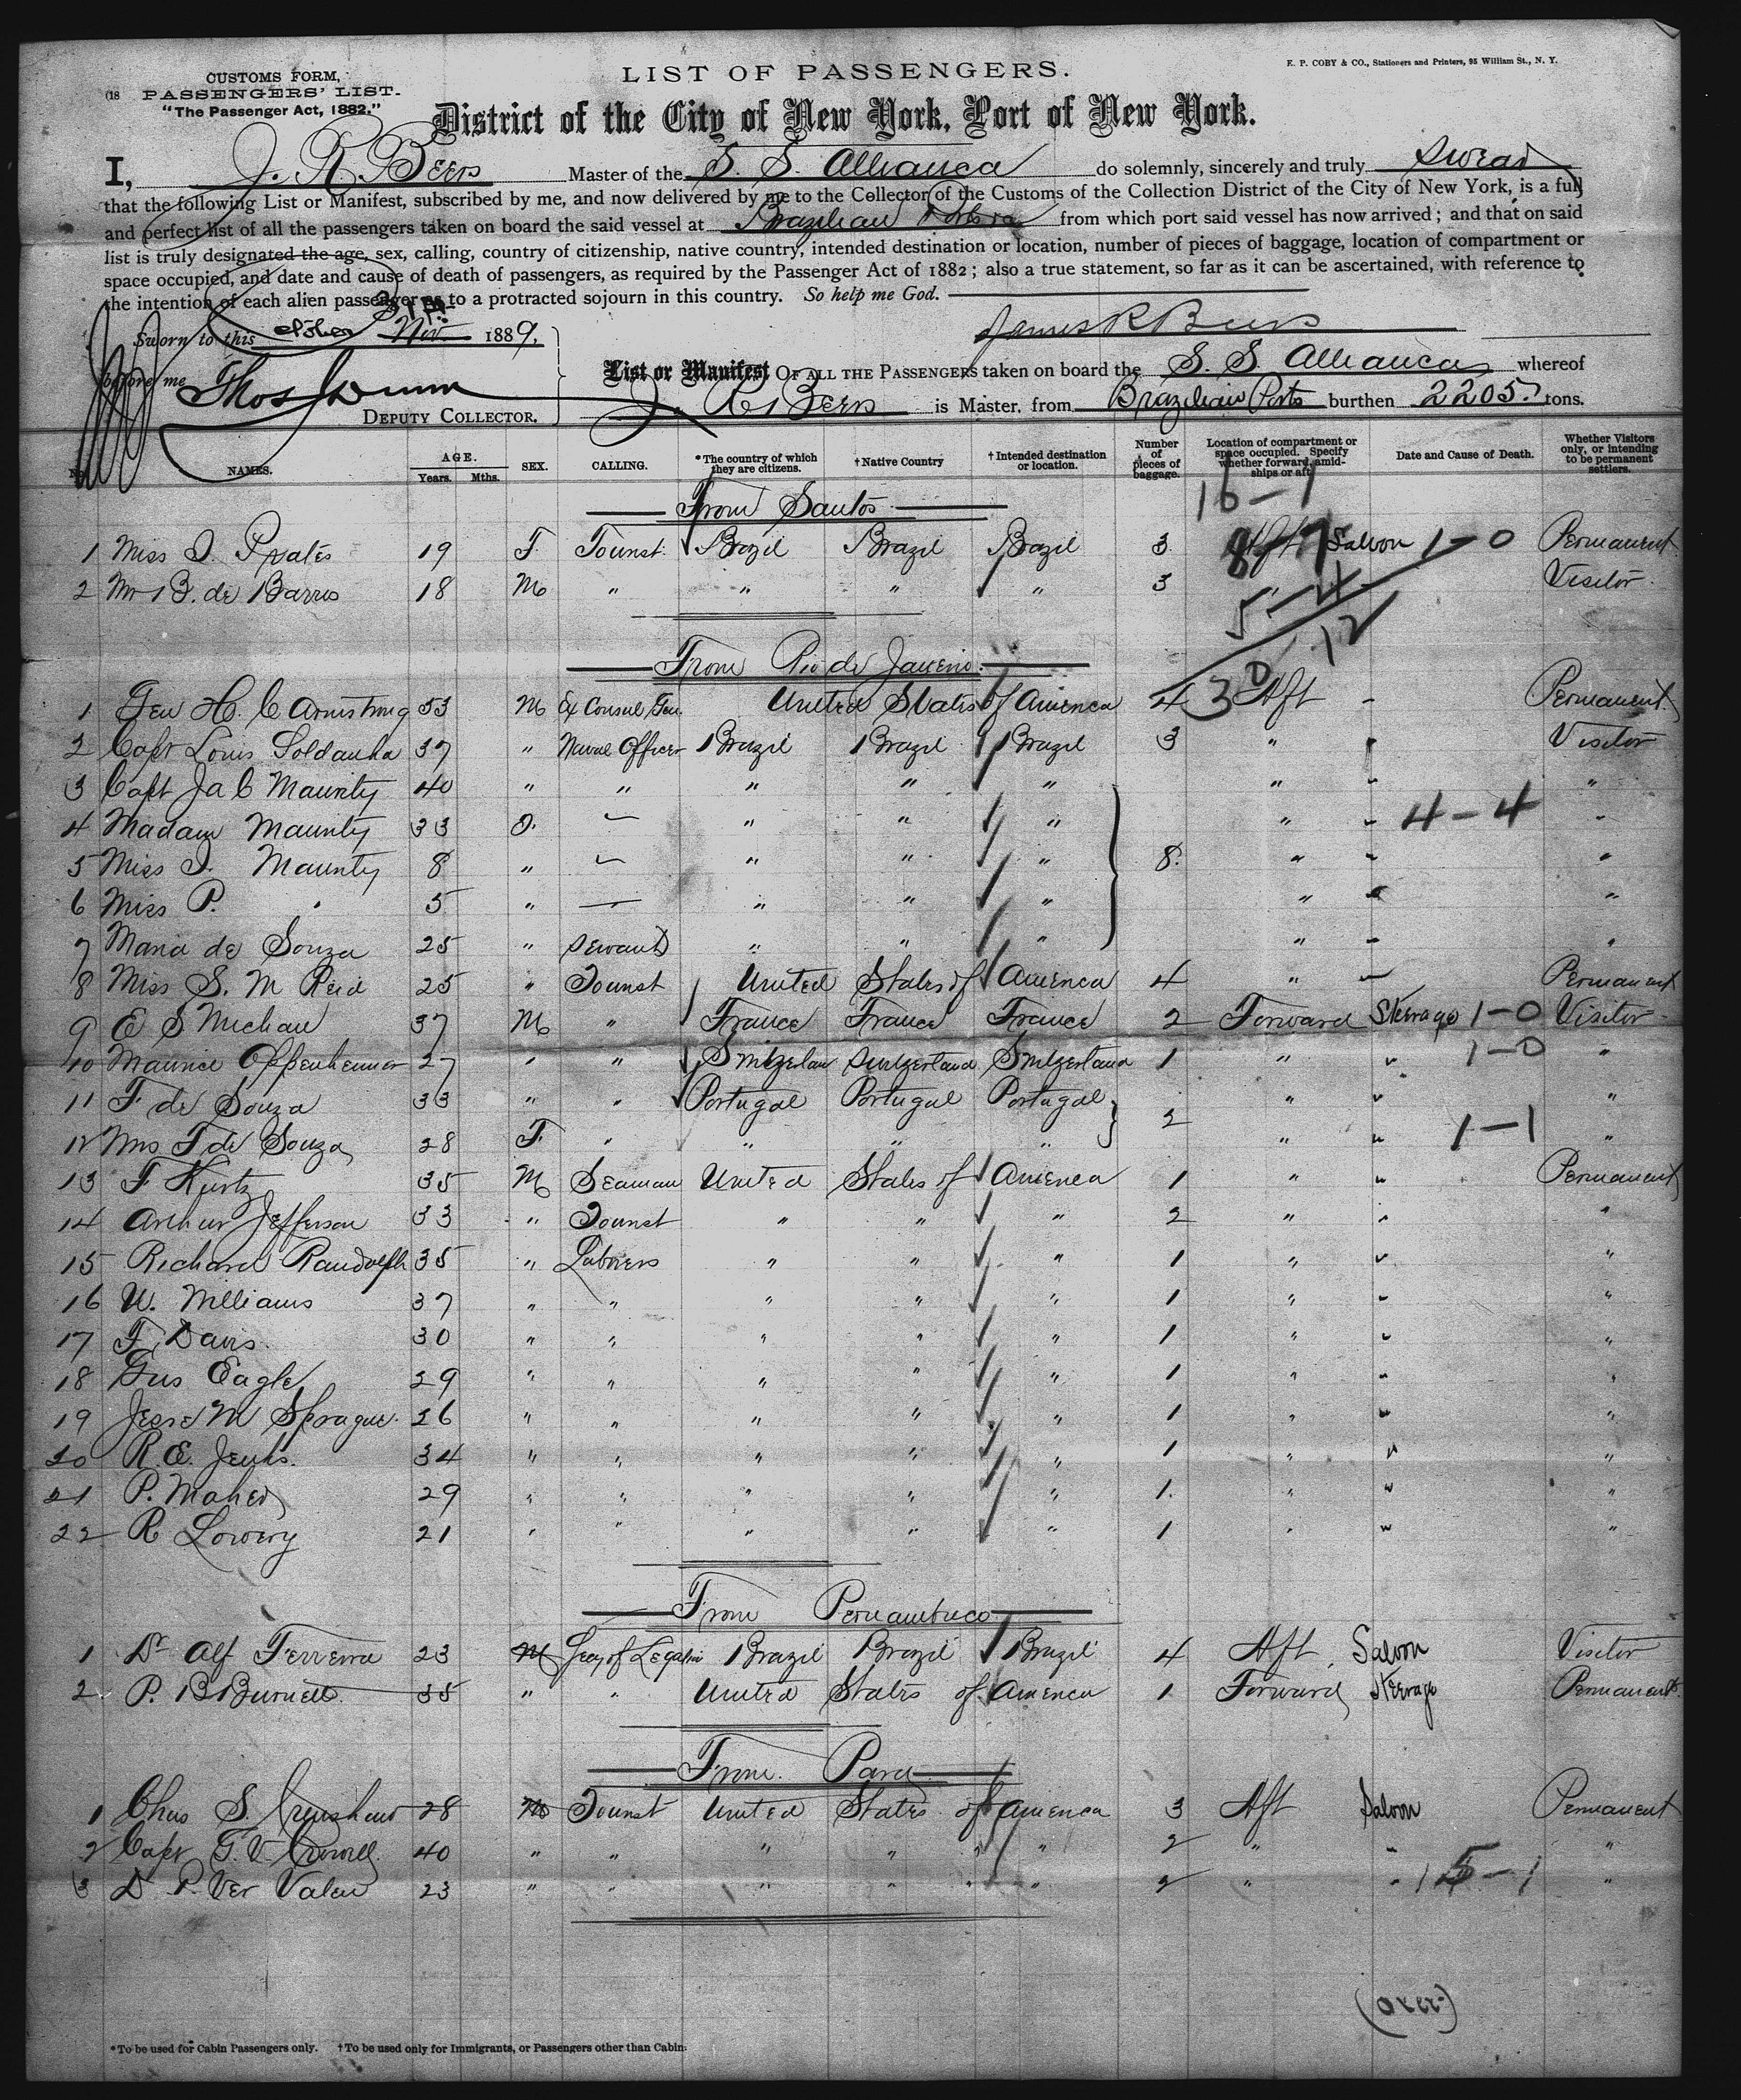 LIST OF PASSENGERS.
E. P. COBY & CO., Stationers and Printers, 95 William St., N. Y.
CUSTOMS FORM,
(18 PASSENGERS' LIST.
"The Passenger Act, 1882."
District of the City of New York, Port of New York.
I, J. R. Beers Master of the S. S. Allianca do solemnly, sincerely and truly swear
that the following List or Manifest, subscribed by me, and now delivered by me to the Collector of the Customs of the Collection District of the City of New York, is a full
and perfect list of all the passengers taken on board the said vessel at Brazilian from which port said vessel has now arrived; and that on said
list is truly designated the age, sex, calling, country of citizenship, native country, intended destination or location, number of pieces of baggage, location of compartment or
space occupied, and date and cause of death of passengers, as required by the Passenger Act of 1882; also a true statement, so far as it can be ascertained, with reference to
the intention of each alien passenger as to a protracted sojourn in this country. So help me God.
Sworn to this Nov. 1889,
James R Beers
before me Thos
DEPUTY COLLECTOR.
List or Manifest OF ALL THE PASSENGERS taken on board the S. S. Allianca whereof
J. R. Beers is Master, from Brazilian Ports burthen 2205. tons.
No. NAMES. AGE. Years. Mths. SEX. CALLING. *The country of which they are citizens. †Native Country †Intended destination or location. Number of pieces of baggage. Location of compartment or space occupied. Specify whether forward, amidships or aft. Date and Cause of Death. Whether Visitors only, or intending to be permanent settlers.
From Santos
16-1
1 Miss I. Prates 19 F. Tourist Brazil Brazil Brazil 3 Saloon 1-0 Permanent
2 Mr B. de Barros 18 M " " " " 3 Visitor
5-4
12
From Rio de Janeiro
1 Gen H. C Armstrong 53 M Ex Consul Gen. United States of America 4 Aft - Permanent
2 Capt Louis Soldanha 37 " Naval Officer Brazil Brazil Brazil 3 " " Visitor
3 Capt Ja C Maurity 40 " " " " " " " "
4 Madam Maurity 33 " " " " " 4-4 "
5 Miss I. Maurity 8 " " " " 8. " " "
6 Miss P. " 5 " — " " " " " "
7 Maria de Souza 25 " Servant " " " " " "
8 Miss S. M Reid 25 " Tourist United States of America 4 " " Permanent
9 E S Michau 37 M " France France France 2 Forward Steerage 1-0 Visitor
10 Maurice Oppenheimer 27 " " Switzerland Switzerland Switzerland 1 " " 1-0 "
11 F de Souza 33 " " Portugal Portugal Portugal 2 " " "
12 Mrs F de Souza 28 F. " " " " " " 1-1 "
13 F Kurtz 35 M Seaman United States of America 1 " " Permanent
14 Arthur Jefferson 33 " Tourist " " " 2 " " "
15 Richard Randolph 35 " Laborers " " " 1 " " "
16 W. Williams 37 " " " " " 1 " " "
17 F. Davis. 30 " " " " " 1 " " "
18 Gus Eagle 29 " " " " " 1 " " "
19 Jesse M Sprague. 26 " " " " " 1 " " "
20 R. E. Jenks. 34 " " " " " 1 " " "
21 P. Maher 29 " " " " " 1. " " "
22 R Lowery 21 " " " " " 1 " " "
From Pernambuco
1 Dr Alf Ferreira 23 M Brazil Brazil Brazil 4 Aft Saloon Visitor
2 P. B Burnett 35 " " United States of America 1 Forward Steerage Permanent
From Para
1 Chas S. Crenshaw 28 M Tourist United States of America 3 Aft Saloon Permanent
2 Capt T. V. Crowell 40 " " " " " 2 " " "
3 D P. Ver Valen 23 " " " " " 2 " " 15-1 "
(over)
*To be used for Cabin Passengers only. †To be used only for Immigrants, or Passengers other than Cabin.